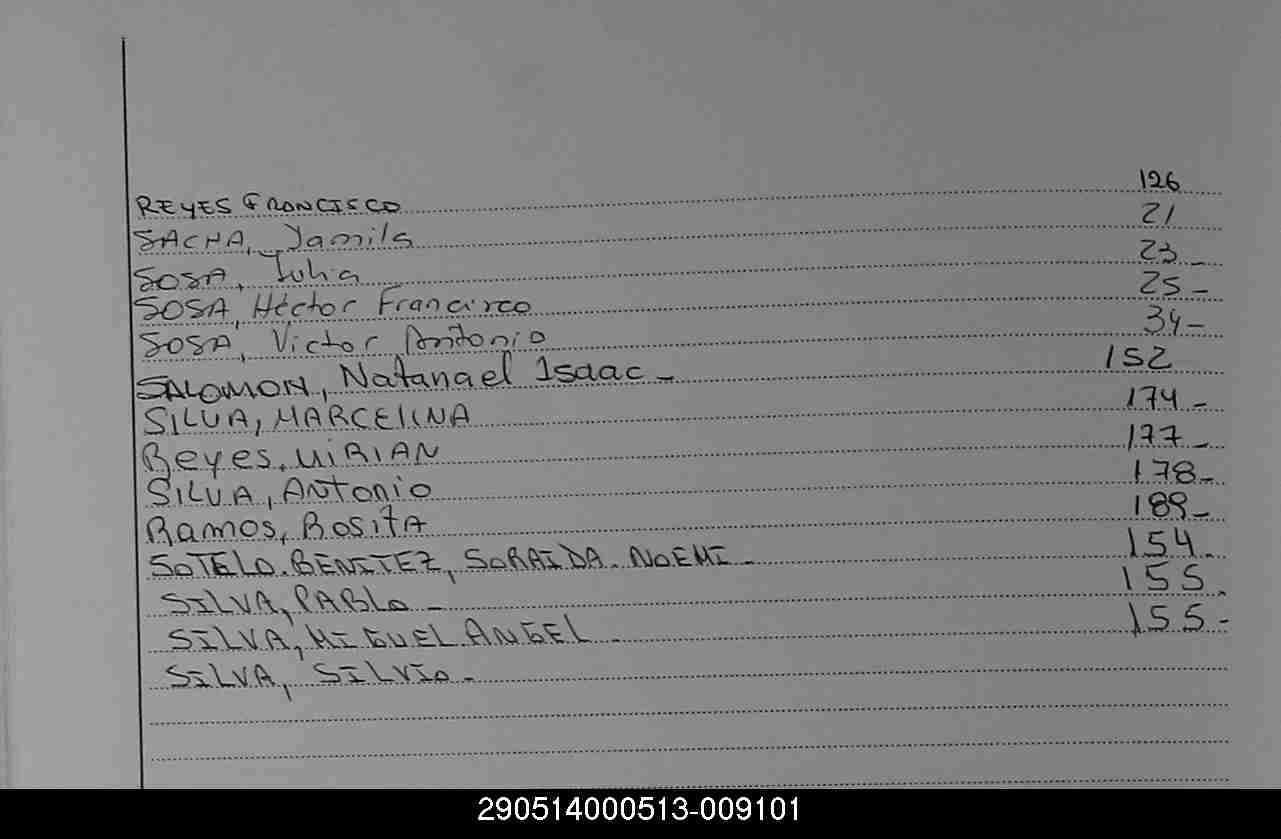 REYES FRANCISCO 126
SACHA, Yamila 21
SOSA, Julia 23 -
SOSA, Héctor Francisco 25 -
SOSA, Victor Antonio 34 -
SALOMON, Natanael Isaac - 152
SILVA, MARCELINA 174 -
Reyes, MIRIAN 177 -
SILVA, Antonio 178 -
Ramos, Rosita 189 -
SOTELO BENITEZ, SORAIDA NOEMI - 154 -
SILVA, PABLO - 155 -
SILVA, MIGUEL ANGEL - 155 -
SILVA, SILVIO -
290514000513-009101